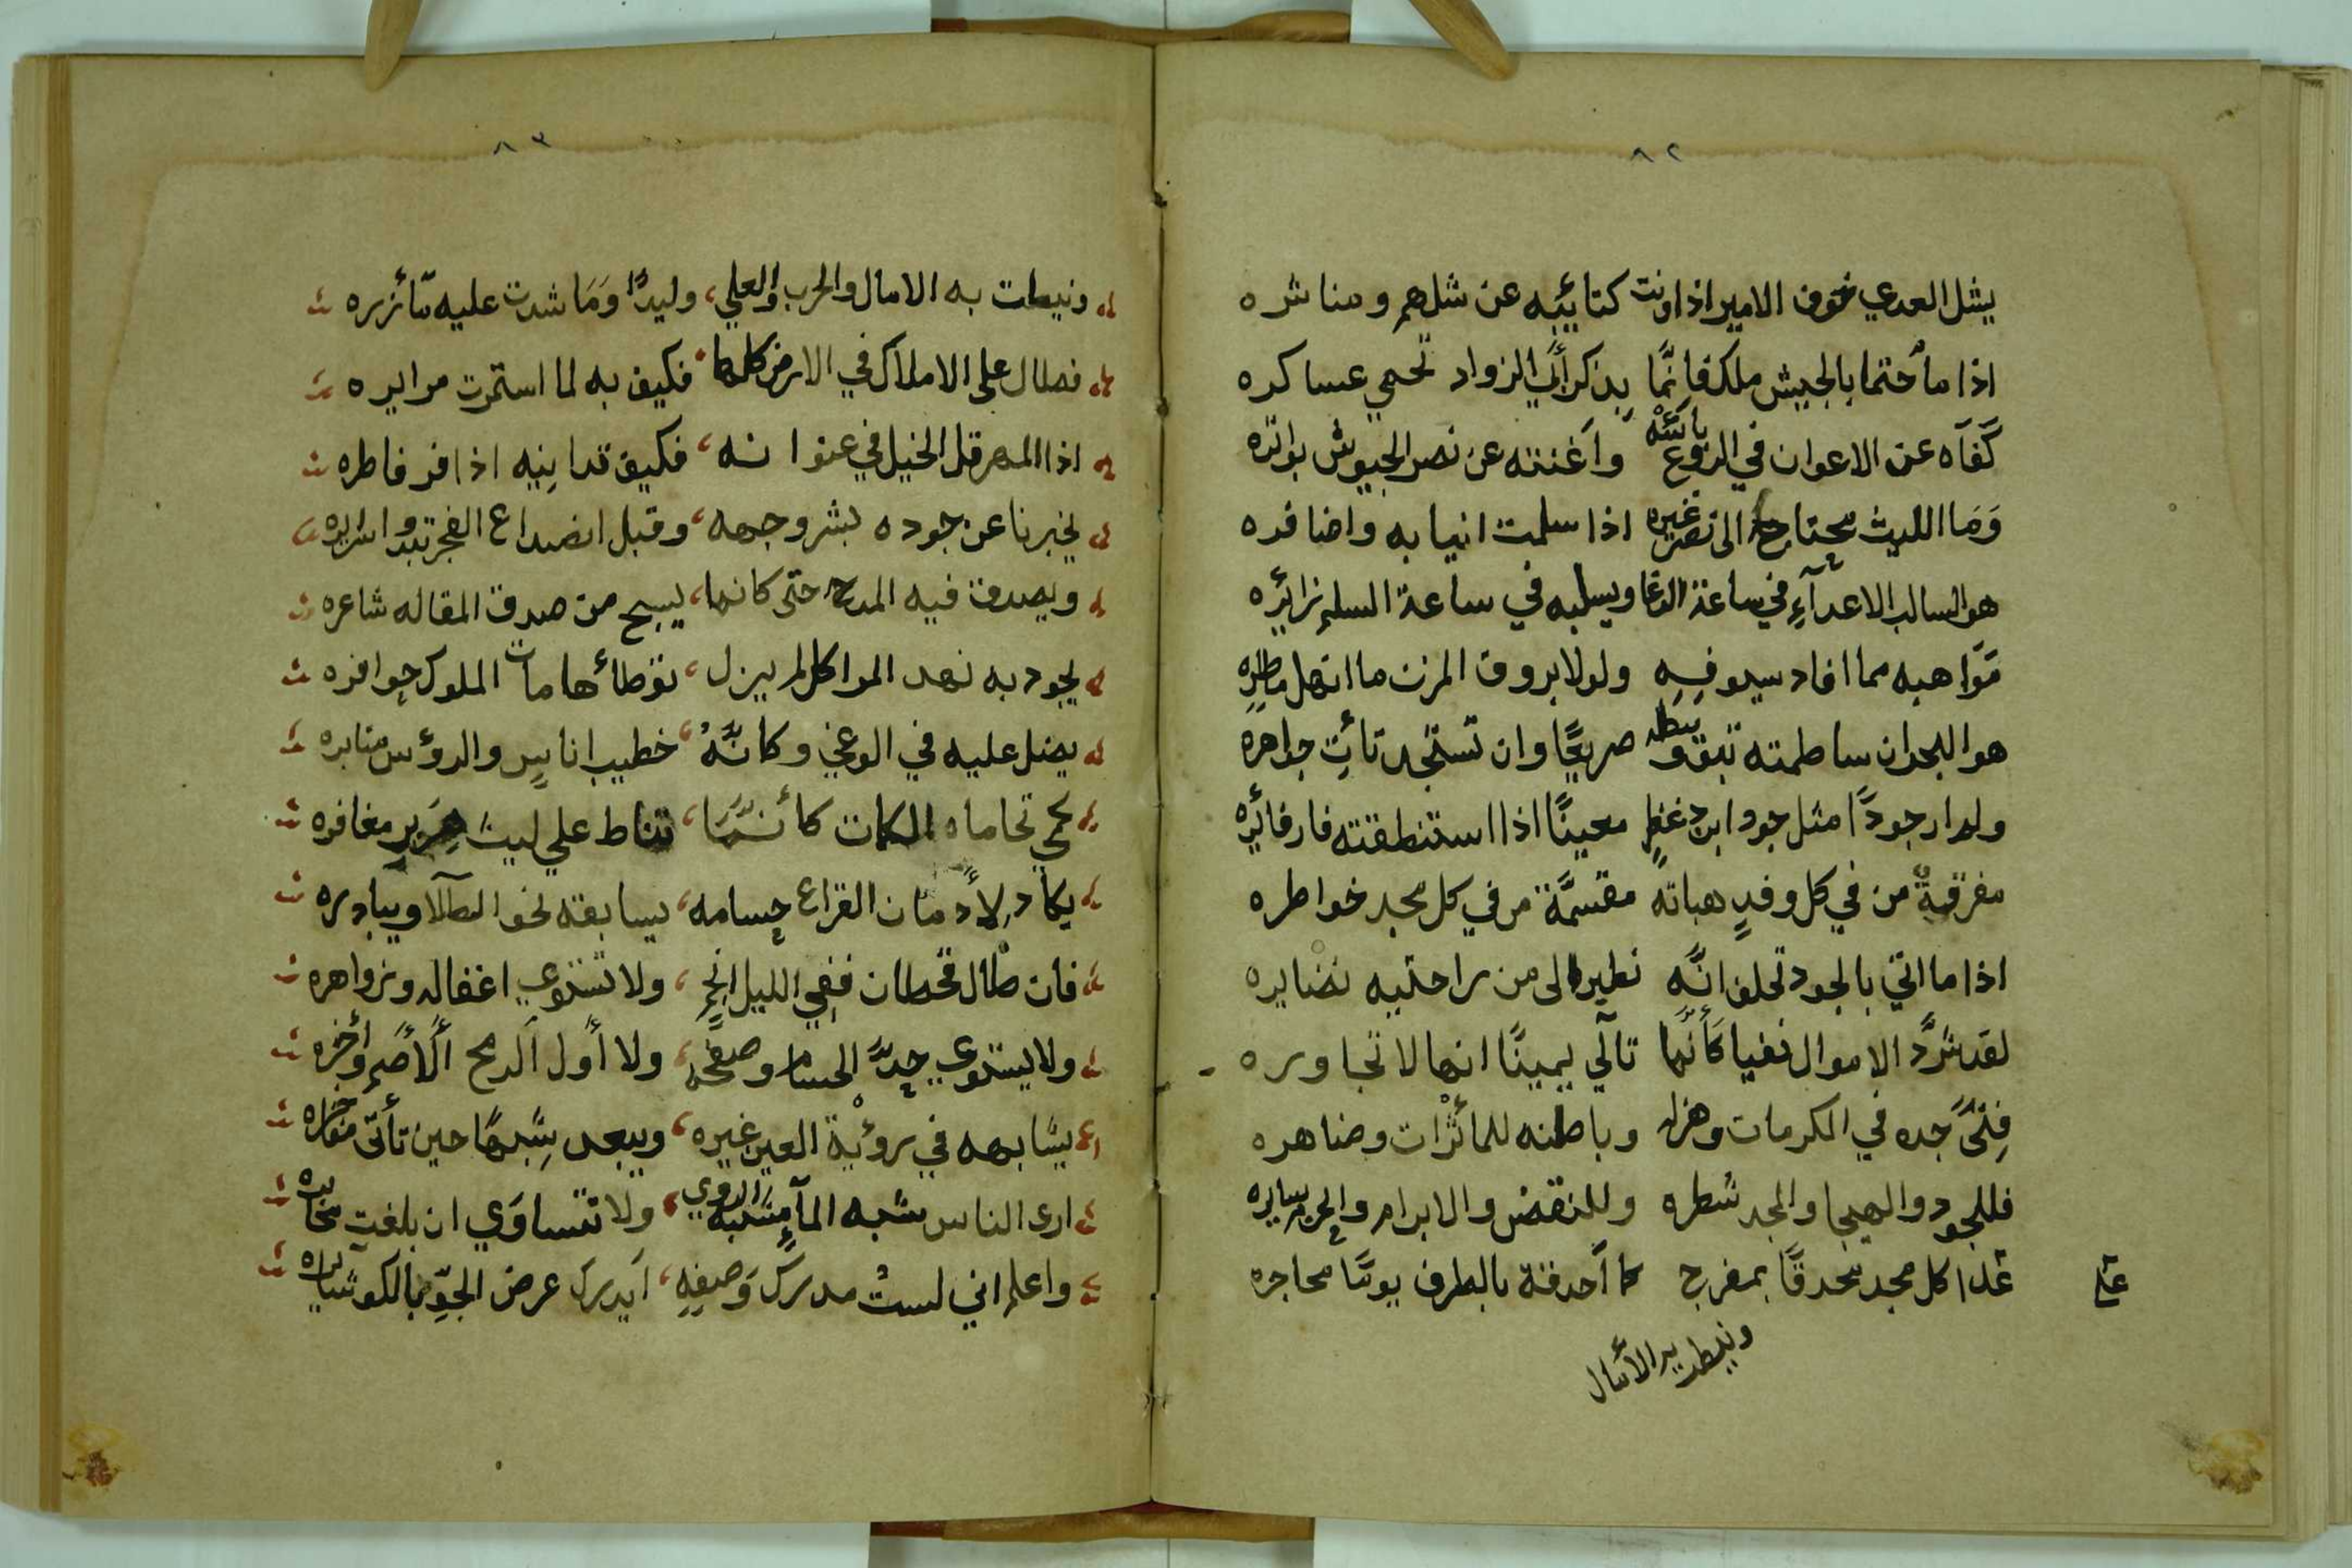 ٨٢
يشل العدي خوف الامير اذا ونت كتائبه عن شلهم ومناشره
اذا ما احتما بالجيش ملك فانما بذكر أبي الزواد تحمي عساكره
كفآه عن الاعوان في الروع بأسه وأغنته عن نصر الجيوش بواتره
وما الليث محتاج الى نصر غيره اذا سلمت انيابه واضافره
هو السالب الاعدآء في ساعة الوغا ويسلبه في ساعة السلم زائره
مواهبه مما افاد سيوفه ولولا بروق المزن ما انهل ماطره
هو البحر ان ساطمته تبق وسطه صريعًا وان تستجد تأت جواهره
ولم ار جودًا مثل جود ابن دغفل معينًا اذا استنطقته فار فائره
مفرقة من في كل وفد هباته مقسمة من في كل مجد خواطره
اذا ما اتي بالجود تحلف انه نطير الى من راحتيه نضايره
لقد شرد الاموال نفيا كأنما تآلي يمينًا انها لا تجاوره
فتى جده في المكرمات وهزله وباطنه للمأثرات وضاهره
فللجود والهيجا والمجد شطره وللنقض والابرام والحرب سايره
غدا كل مجد محدقًا بمفرج كما أحدقة بالطرف يومًا محاجره
ونيطت به الأمال
٨٣
ونيطت به الامال والحرب والعلي، وليدًا وما شدت عليه مأزره
فطال على الاملاك في الارض كلها فكيف به لما استمرت مرايره
اذا المهر قل الخيل في عنوانه، فكيف تدانيه اذا فر فاطره
يخبرنا عن جوده بشر وجهه، وقبل انصداع الفجر تبدو اشايره
ويصدق فيه المدح حتى كانها، يسبح من صدق المقاله شاعره
يجود به نهد المراكل لم يزل، توطأ هامات الملوك حوافره
يضل عليه في الوغي وكأنه، خطيب اناس والرؤس منابره
كمي تحاماه الكمات كأنما، تناط علي ليث هزبر مغافره
يكاد لأدمان القراع حسامه، يسابقه نحو الطلا ويبادره
فان طال قحطان ففي الليل انجم، ولا تستوي اغفاله وزواهره
ولا يستوي حد الحسام وصفحه، ولا أول الرمح الأصم وأخره
يشابهه في رؤية العين غيره، ويبعد شبهًا حين تأتي مخابره
ارى الناس شبه المآ مشبه الروي، ولا تتساوي ان بلغت مخابره
واعلم اني لست مدرك وصفه، أيدرك عرض الجو بالكو شابره